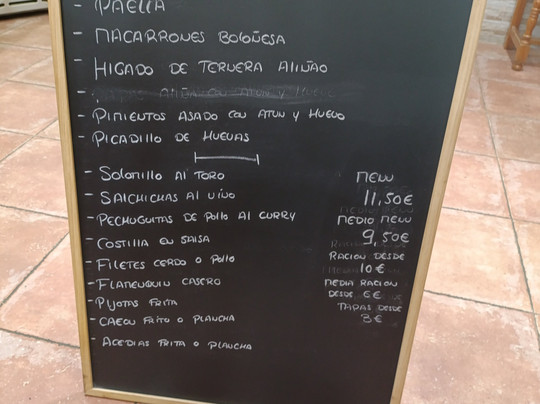 - PAELLA
- MACARRONES BOLOÑESA
- HIGADO DE TERNERA AliÑAO
- PIMIENTOS ASADO CON ATUN Y HUEVO
- PICADILLO DE HUEVAS
- Solomillo Al TORO
- SALCHICHAS Al VINO
- PECHUGUITAS DE POLLO Al CURRY
- COSTILLA EN SALSA
- FILETES CERDO O POLLO
- FLAMENQUIN CASERO
- PIJOTAS FRITA
- CAZON FRITO O PLANCHA
- ACEDIAS FRITA O PLANCHA
MENU
11,50€
MEDIO MENU
9,50€
RACION DESDE
10€
MEDIA RACION
DESDE 6€
TAPAS DESDE
3€